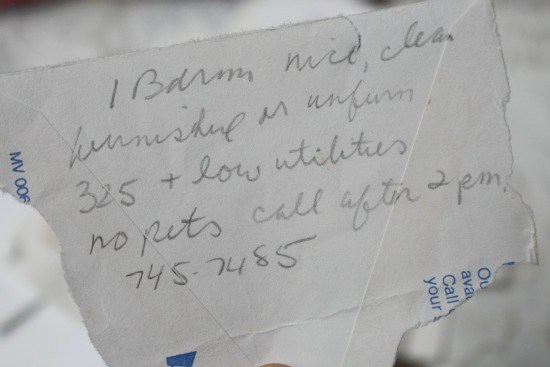 1 Bdrm nice, clean
furnished or unfurn
325 + low utilities
no pets call after 2 pm.
745-7485
MV 006
Ou
ava
Call
your